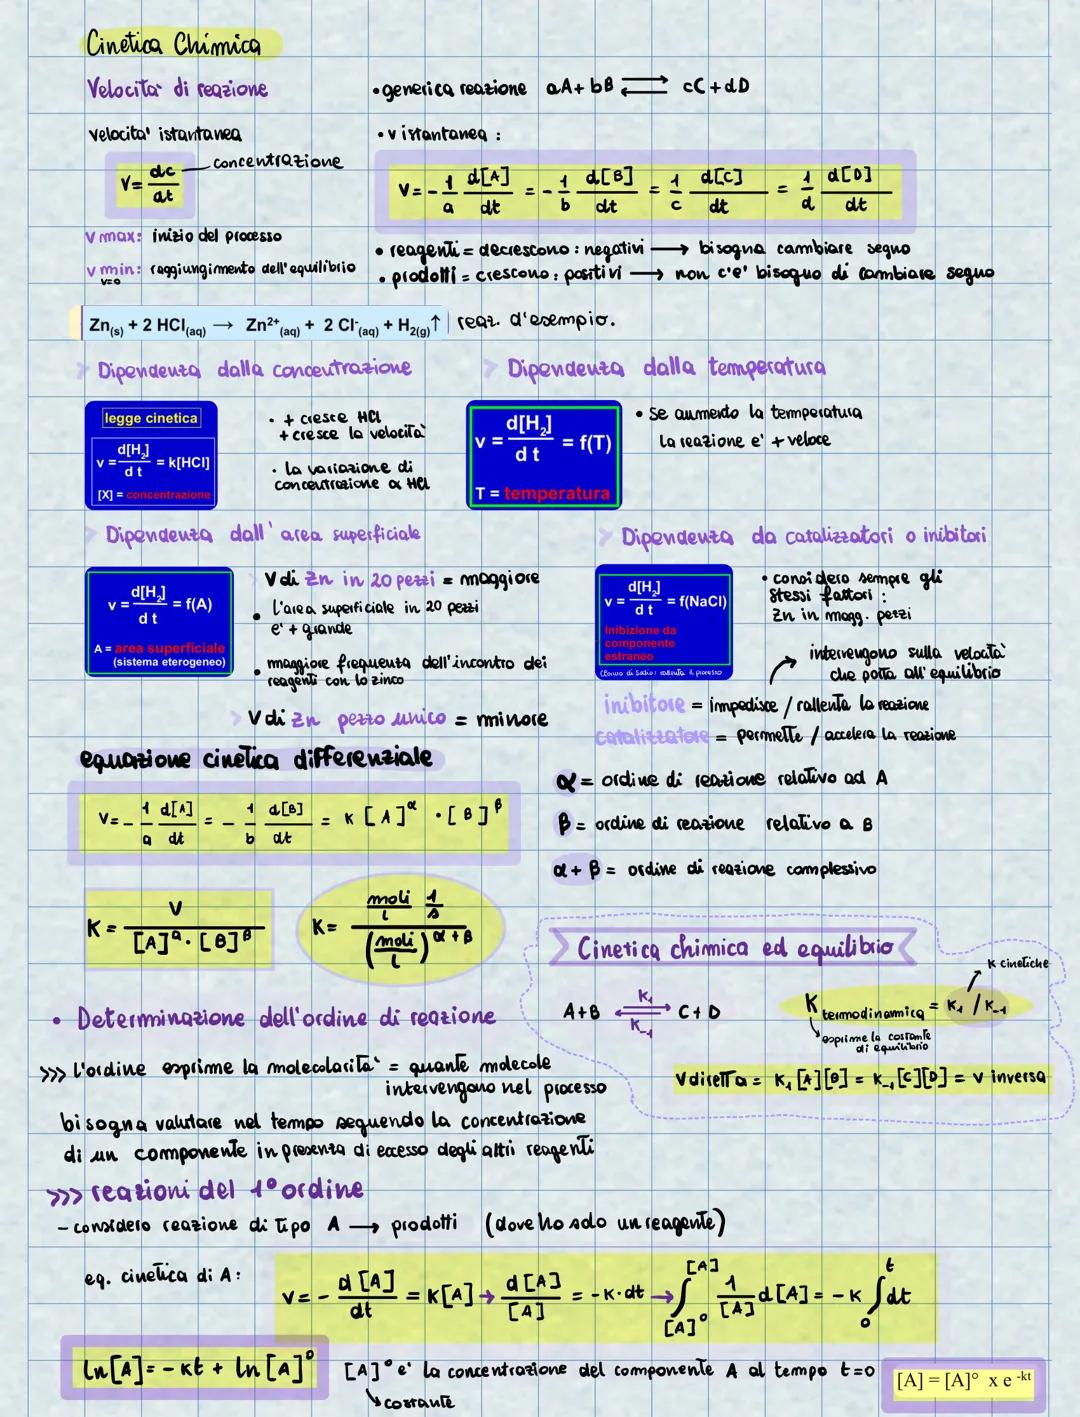 Cinetica Chimica
Velocita' di reazione
• generica reazione aA + bB ⇄ cC + dD
velocita' istantanea
• v istantanea :
V = dc/dt
concentrazione
V = - 1/a d[A]/dt = - 1/b d[B]/dt = 1/c d[C]/dt = 1/d d[D]/dt
v max: inizio del processo
v min: raggiungimento dell'equilibrio
v=0
• reagenti = decrescono : negativi → bisogna cambiare segno
• prodotti = crescono : positivi → non c'e' bisogno di cambiare segno
Zn(s) + 2 HCl(aq) → Zn²⁺(aq) + 2 Cl⁻(aq) + H₂(g)↑ reaz. d'esempio.
Dipendenza dalla concentrazione
Dipendenza dalla temperatura
legge cinetica
v = d[H₂]/d t = k[HCl]
[X] = concentrazione
• + cresce HCl
+ cresce la velocità
• la variazione di
concentrazione α HCl
v = d[H₂]/d t = f(T)
T = temperatura
• se aumento la temperatura
la reazione e' + veloce
Dipendenza dall'area superficiale
Dipendenza da catalizzatori o inibitori
v = d[H₂]/d t = f(A)
A = area superficiale
(sistema eterogeneo)
V di Zn in 20 pezzi = maggiore
• l'area superficiale in 20 pezzi
e' + grande
• maggiore frequenza dell'incontro dei
reagenti con lo zinco
V di Zn pezzo unico = minore
v = d[H₂]/d t = f(NaCl)
Inibizione da
componente
estraneo
Cloruro di Sodio: rallenta il processo
• considero sempre gli
stessi fattori :
Zn in magg. pezzi
intervengono sulla velocità
che porta all'equilibrio
inibitore = impedisce / rallenta la reazione
catalizzatore = permette / accelera la reazione
equazione cinetica differenziale
V = - 1/a d[A]/dt = - 1/b d[B]/dt = K [A]^α · [B]^β
α = ordine di reazione relativo ad A
β = ordine di reazione relativo a B
α + β = ordine di reazione complessivo
K = V / [A]^α · [B]^β
K = moli/l 1/s / (moli/l)^α+β
Cinetica chimica ed equilibrio
K cinetiche
A + B ⇄ C + D
K₁
K₋₁
K termodinamica = K₁ / K₋₁
esprime la costante
di equilibrio
V diretta = K₁ [A][B] = K₋₁ [C][D] = v inversa
• Determinazione dell'ordine di reazione
>>> L'ordine esprime la molecolarita' = quante molecole
intervengono nel processo
bisogna valutare nel tempo seguendo la concentrazione
di un componente in presenza di eccesso degli altri reagenti
>>> reazioni del 1° ordine
- considero reazione di tipo A → prodotti (dove ho solo un reagente)
eq. cinetica di A:
V = - d[A]/dt = K[A] → d[A]/[A] = -K·dt → ∫[A]°^[A] 1/[A] d[A] = -K ∫0^t dt
ln[A] = -Kt + ln[A]°
[A]° e' la concentrazione del componente A al tempo t=0
costante
[A] = [A]° x e^-kt